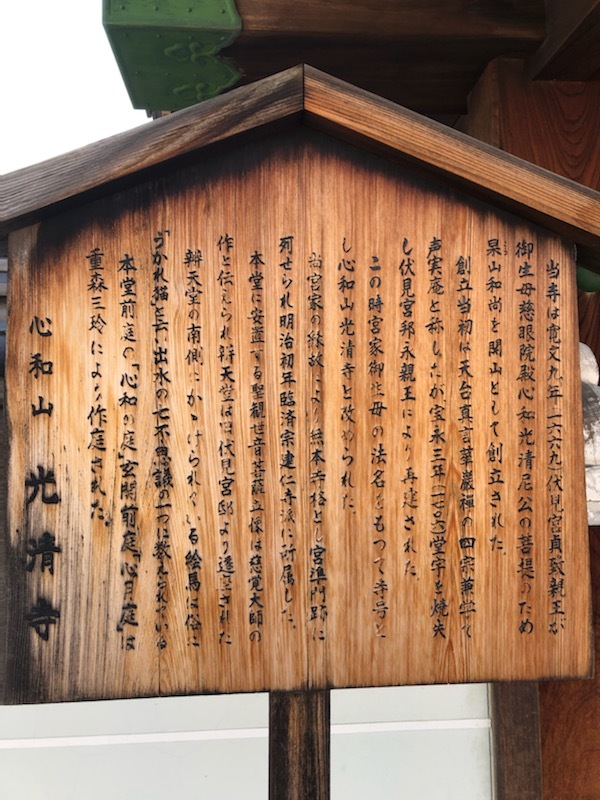 当寺は寛文九年(一六六九)伏見宮貞致親王が
御生母慈眼院殿心和光清尼公の菩提のため
杲山和尚を開山として創立された。
創立当初は天台真言華厳禅の四宗兼学で
声実庵と称したが宝永三年(一七〇六)堂宇を焼失
し伏見宮邦永親王により再建された。
この時宮家御生母の法名をもつて寺号と
し心和山光清寺と改められた。
当宮家の縁故により無本寺格とし宮準門跡に
列せられ明治初年臨済宗建仁寺派に所属した。
本堂に安置する聖観世音菩薩立像は慈覚大師の
作と伝えられ辨天堂は旧伏見宮邸より遷された
辨天堂の南側にかゝげられている絵馬は俗に
「うかれ猫」と云い出水の七不思議の一つに数えられている
本堂前庭の「心和の庭」玄関前庭「心月庭」は
重森三玲により作庭された。
心和山 光清寺